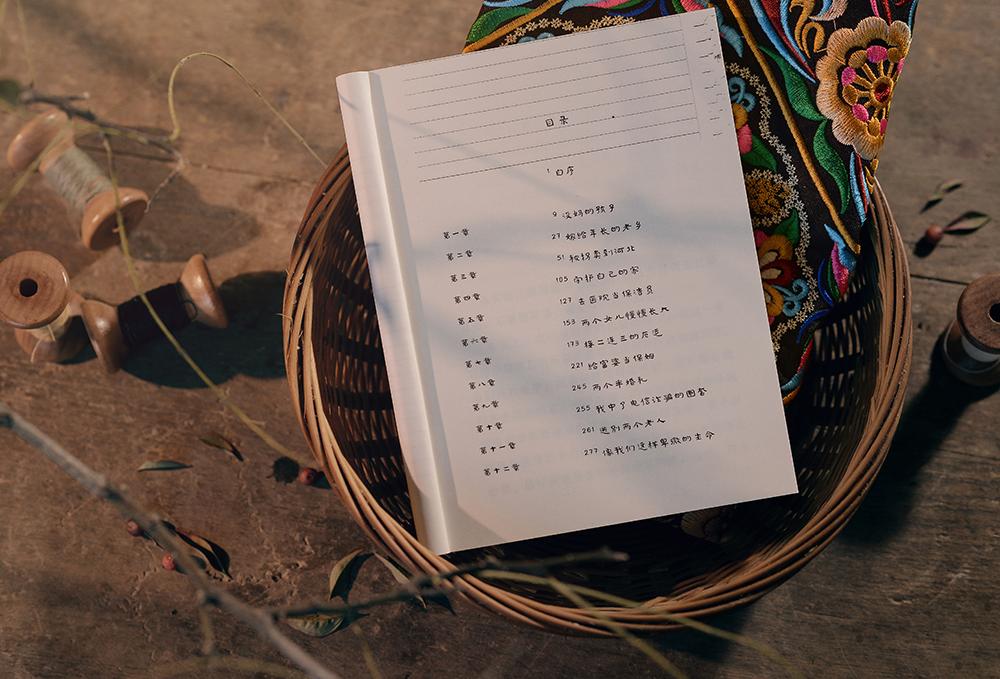 目录
1 自序
第一章 9 没妈的孩子
第二章 27 嫁给年长的老乡
第三章 51 被拐卖到河北
第四章 105 自己的家
第五章 127 去医院当保洁员
第六章 153 两个女儿慢慢长大
第七章 173 接二连三的厄运
第八章 221 给富婆当保姆
第九章 245 两个半婚礼
第十章 255 我中了电信诈骗的圈套
第十一章 261 送别两个老人
第十二章 277 像我们这样卑微的生命